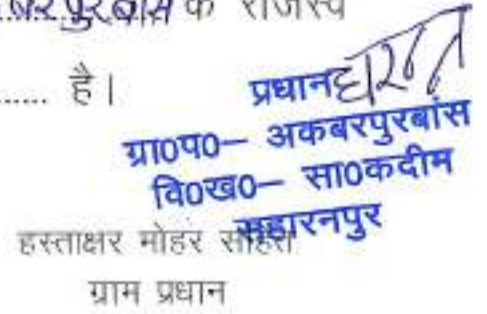 अकबरपुरबांस के राजस्व
....... है।
प्रधान
ग्रा०प०– अकबरपुरबांस
वि०ख०– सा०कदीम
सहारनपुर
हस्ताक्षर मोहर सहित
ग्राम प्रधान